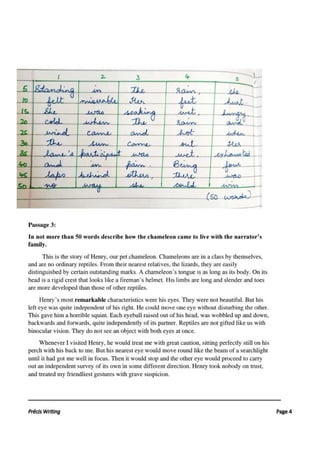 1 2 3 4 5
5 Standing in The Rain, she
10 felt miserable. Her feet hurt
15 She was soaking wet, hungry
20 cold when The Rain and
25 wind came and hot when
30 The Sun Came out Her
35 Lane's participant was wet, exhausted
40 and in Pain. Being four
45 laps behind others, There was
50 no way she could win
(50 words)
Passage 3:
In not more than 50 words describe how the chameleon came to live with the narrator's
family.
This is the story of Henry, our pet chameleon. Chameleons are in a class by themselves,
and are no ordinary reptiles. From their nearest relatives, the lizards, they are easily
distinguished by certain outstanding marks. A chameleon's tongue is as long as its body. On its
head is a rigid crest that looks like a fireman's helmet. His limbs are long and slender and toes
are more developed than those of other reptiles.
Henry's most remarkable characteristics were his eyes. They were not beautiful. But his
left eye was quite independent of his right. He could move one eye without disturbing the other.
This gave him a horrible squint. Each eyeball raised out of his head, was wobbled up and down,
backwards and forwards, quite independently of its partner. Reptiles are not gifted like us with
binocular vision. They do not see an object with both eyes at once.
Whenever I visited Henry, he would treat me with great caution, sitting perfectly still on his
perch with his back to me. But his nearest eye would move round like the beam of a searchlight
until it had got me well in focus. Then it would stop and the other eye would proceed to carry
out an independent survey of its own in some different direction. Henry took nobody on trust,
and treated my friendliest gestures with grave suspicion.
Précis Writing Page 4